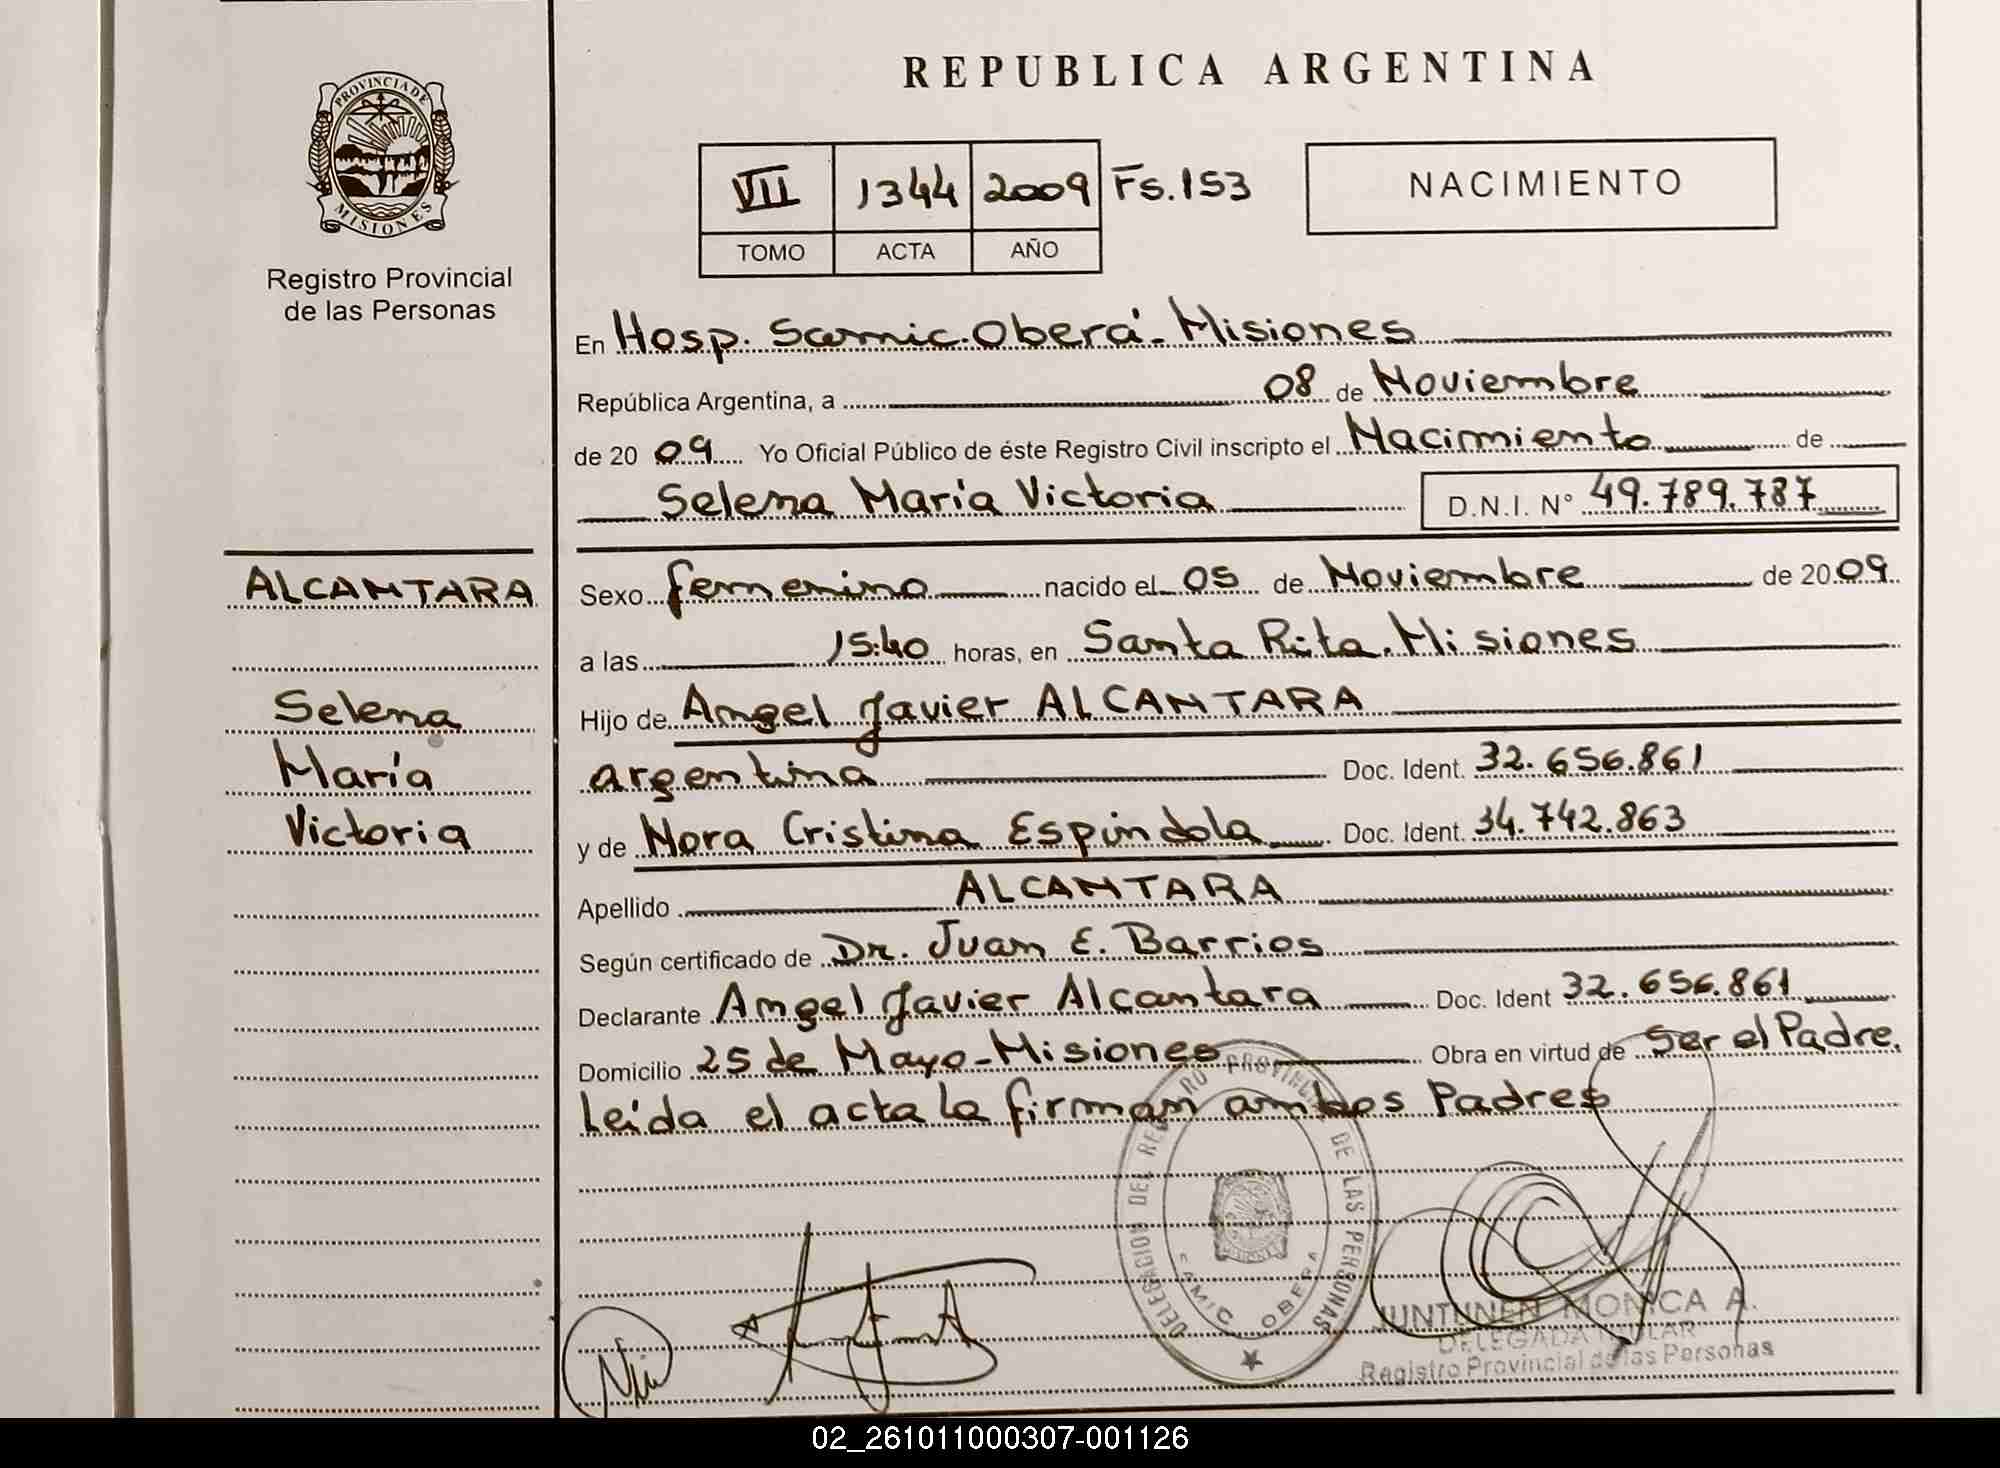 PROVINCIA DE
MISIONES
Registro Provincial
de las Personas
REPUBLICA ARGENTINA
VII 1344 2009 Fs. 153
TOMO ACTA AÑO
NACIMIENTO
En Hosp. Samic. Oberá - Misiones
República Argentina, a 08 de Noviembre
de 20 09 Yo Oficial Público de éste Registro Civil inscripto el Nacimiento de
Selena María Victoria D.N.I. N° 49.789.787
ALCANTARA
Selena
María
Victoria
Sexo femenino nacido el 05 de Noviembre de 2009
a las 15:40 horas, en Santa Rita. Misiones
Hijo de Angel Javier ALCANTARA
argentina Doc. Ident. 32.656.861
y de Nora Cristina Espindola Doc. Ident. 34.742.863
Apellido ALCANTARA
Según certificado de Dr. Juan E. Barrios
Declarante Angel Javier Alcantara Doc. Ident 32.656.861
Domicilio 25 de Mayo - Misiones Obra en virtud de Ser el Padre.
Leída el acta la firman ambos Padres
DELEGACION DEL REGISTRO PROVINCIAL DE LAS PERSONAS
SAMIC OBERA
MISIONES
JUNTUNEN MONICA A.
DELEGADA TITULAR
Registro Provincial de las Personas
02_261011000307-001126